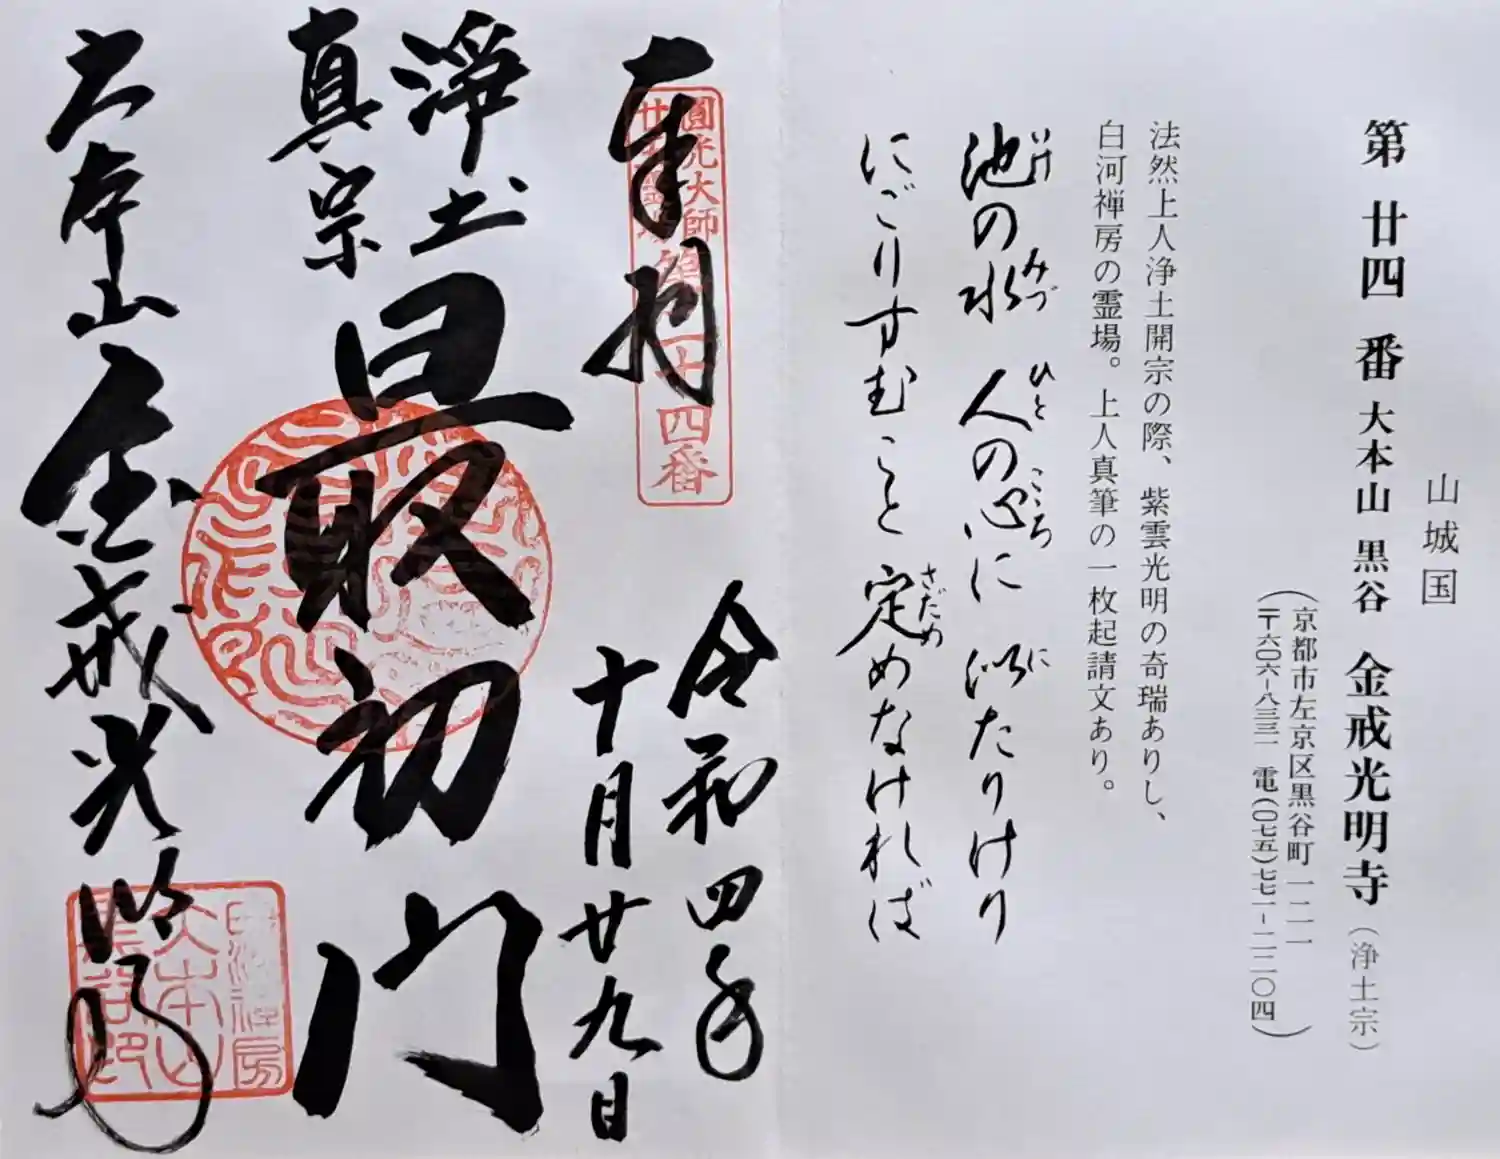 山城国
第廿四番 大本山 黒谷 金戒光明寺（浄土宗）
（京都市左京区黒谷町一二一
〒六〇六-八三三一 電(〇七五)七七一-二二〇四）
法然上人浄土開宗の際、紫雲光明の奇瑞ありし、
白河禅房の霊場。上人真筆の一枚起請文あり。
池の水 人の心に 似たりけり
いけ みづ ひと こころ に
にごりすむこと 定めなければ
さだめ
奉拝
圓光大師
廿五霊場
第二十四番
令和四年
十月廿九日
浄土
真宗
最初門
大本山 金戒光明寺
白河禅房
大本山
黒谷